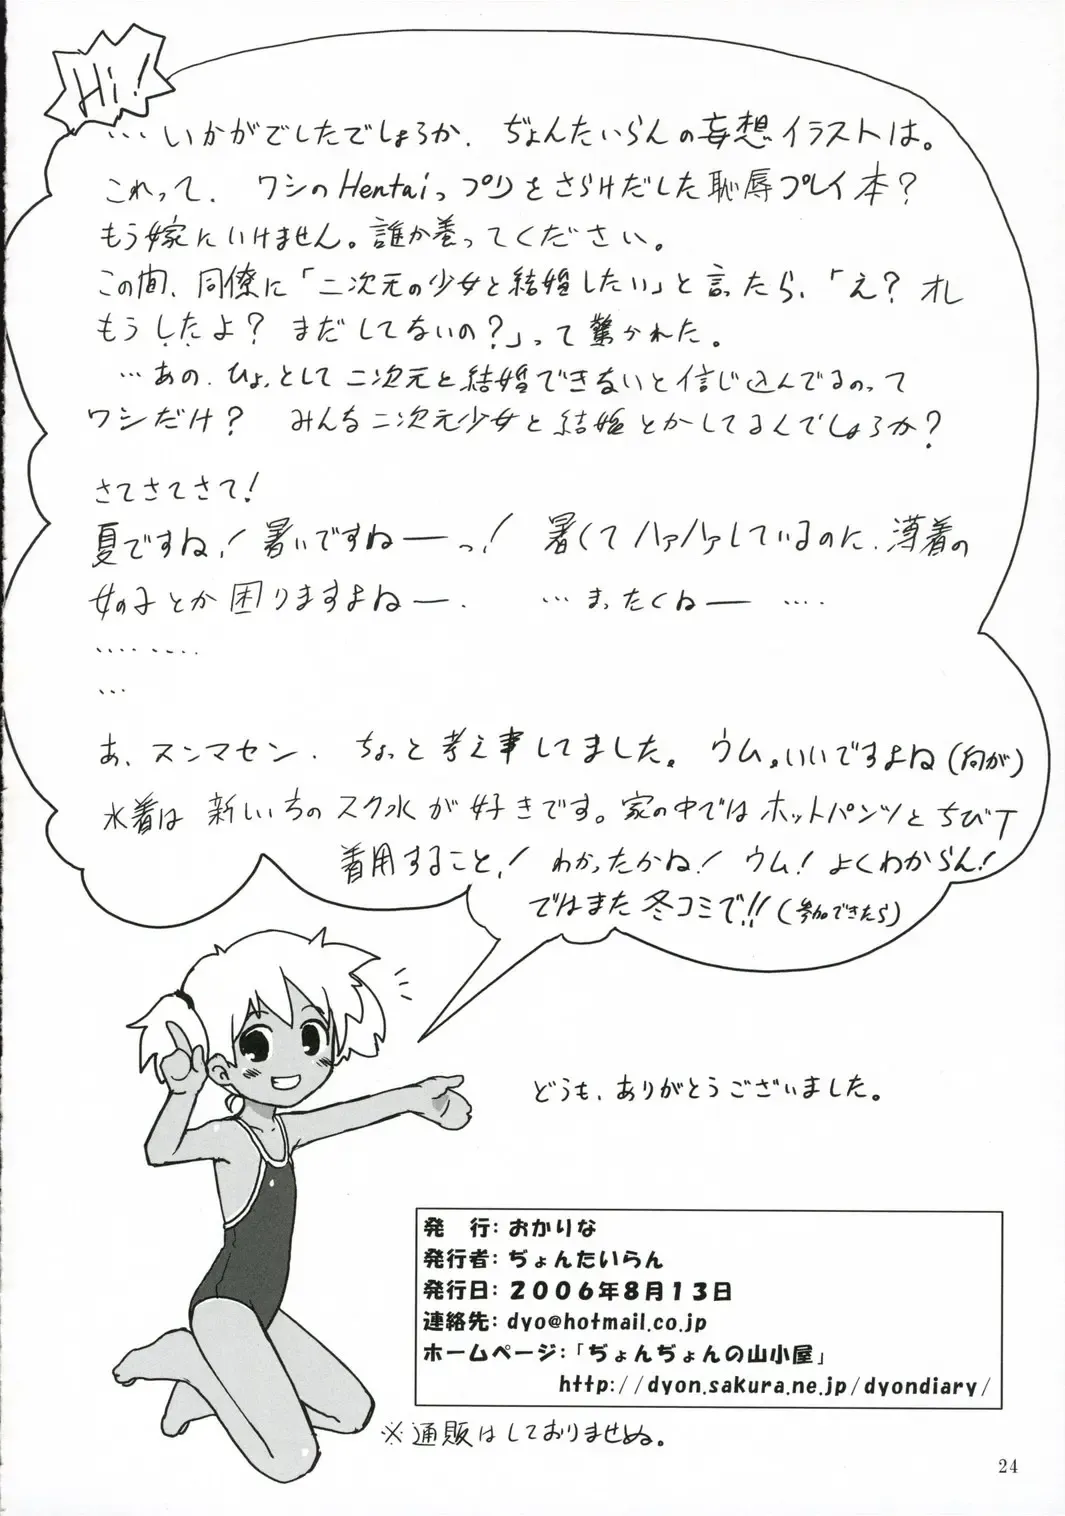 Hi!
…いかがでしたでしょうか、ぢょんたいらんの妄想イラストは。
これって、ワシのHentaiっプリをさらけだした恥辱プレイ本?
もう嫁にいけません。誰か巻ってください。
この間、同僚に「二次元の少女と結婚したい」と言ったら、「え? オレ
もうしたよ? まだしてないの?」って驚かれた。
…あの、ひょっとして二次元と結婚できないと信じ込んでるのって
ワシだけ? みんな二次元少女と結婚とかしてるんでしょうか?
さてさてさて!
夏ですね! 暑いですねーっ! 暑くてハァハァしているのに、薄着の
女の子とか困りますよねー。 …まったくねー ….
………
…
あ、スンマセン、ちょっと考え事してました。ウム。いいですよね(何が)
水着は新しいうちのスク水が好きです。家の中ではホットパンツとちびT
着用すること! わかったかね! ウム! よくわからん!
ではまた冬コミで!!(参加できたら)
どうも、ありがとうございました。
発 行:おかりな
発行者:ぢょんたいらん
発行日:2006年8月13日
連絡先:dyo@hotmail.co.jp
ホームページ:「ぢょんぢょんの山小屋」
http://dyon.sakura.ne.jp/dyondiary/
※通販はしておりませぬ。
24